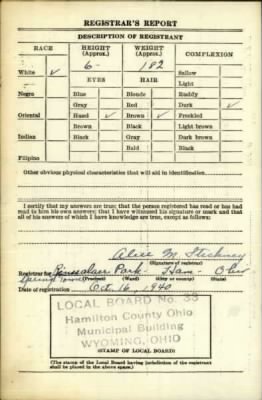 REGISTRAR'S REPORT
DESCRIPTION OF REGISTRANT
RACE HEIGHT (Approx.) WEIGHT (Approx.) COMPLEXION
White ✓ 6- 182 Sallow
EYES HAIR Light
Negro Blue Blonde Ruddy
Gray Red Dark ✓
Oriental Hazel ✓ Brown ✓ Freckled
Brown Black Light brown
Indian Black Gray Dark brown
Bald Black
Filipino
Other obvious physical characteristics that will aid in identification
I certify that my answers are true; that the person registered has read or has had
read to him his own answers; that I have witnessed his signature or mark and that
all of his answers of which I have knowledge are true, except as follows:
Alice M. Stickney
(Signature of registrar)
Registrar for Park - Ham - Ohio
(Precinct) (Ward) (City or county) (State)
Date of registration Oct. 16, 1940
LOCAL BOARD No. 33
Hamilton County Ohio
Municipal Building
WYOMING, OHIO
(STAMP OF LOCAL BOARD)
(The stamp of the Local Board having jurisdiction of the registrant
shall be placed in the above space.)